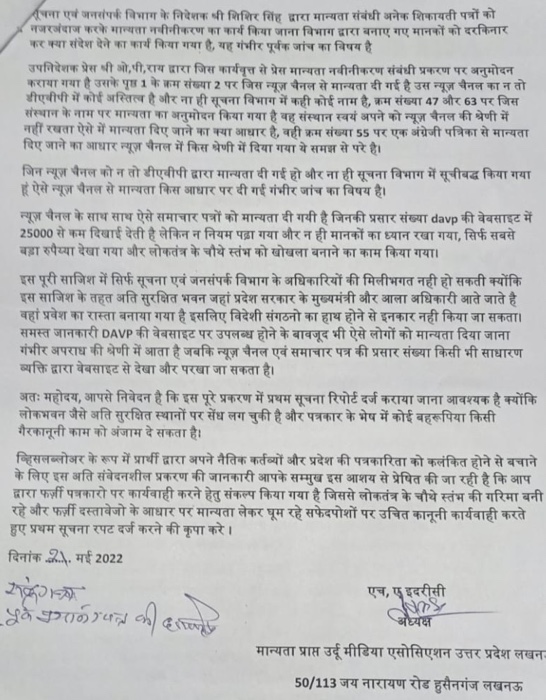 सूचना एवं जनसंपर्क विभाग के निदेशक श्री शिशिर सिंह द्वारा मान्यता संबंधी अनेक शिकायती पत्रों को
नजरअंदाज करके मान्यता नवीनीकरण का कार्य किया जाना विभाग द्वारा बनाए गए मानकों को दरकिनार
कर क्या संदेश देने का कार्य किया गया है, यह गंभीर पूर्वक जांच का विषय है
उपनिदेशक प्रेस श्री ओ,पी,राय द्वारा जिस कार्यवृत्त से प्रेस मान्यता नवीनीकरण संबंधी प्रकरण पर अनुमोदन
कराया गया है उसके पृष्ठ 1 के क्रम संख्या 2 पर जिस न्यूज़ चैनल से मान्यता दी गई है उस न्यूज़ चैनल का न तो
डीएवीपी में कोई अस्तित्व है और ना ही सूचना विभाग में कही कोई नाम है, क्रम संख्या 47 और 63 पर जिस
संस्थान के नाम पर मान्यता का अनुमोदन किया गया है वह संस्थान स्वयं अपने को न्यूज़ चैनल की श्रेणी में
नहीं रखता ऐसे में मान्यता दिए जाने का क्या आधार है, वही क्रम संख्या 55 पर एक अंग्रेजी पत्रिका से मान्यता
दिए जाने का आधार न्यूज़ चैनल में किस श्रेणी में दिया गया ये समझ से परे है।
जिन न्यूज़ चैनल को न तो डीएवीपी द्वारा मान्यता दी गई हो और ना ही सूचना विभाग में सूचीबद्ध किया गया
हूं ऐसे न्यूज़ चैनल से मान्यता किस आधार पर दी गई गंभीर जांच का विषय है।
न्यूज़ चैनल के साथ साथ ऐसे समाचार पत्रों को मान्यता दी गयी है जिनकी प्रसार संख्या davp की वेबसाइट में
25000 से कम दिखाई देती है लेकिन न नियम पढ़ा गया और न ही मानकों का ध्यान रखा गया, सिर्फ सबसे
बड़ा रुपैय्या देखा गया और लोकतंत्र के चौथे स्तंभ को खोखला बनाने का काम किया गया।
इस पूरी साजिश में सिर्फ सूचना एवं जनसंपर्क विभाग के अधिकारियों की मिलीभगत नही हो सकती क्योंकि
इस साजिश के तहत अति सुरक्षित भवन जहां प्रदेश सरकार के मुख्यमंत्री और आला अधिकारी आते जाते है
वहां प्रवेश का रास्ता बनाया गया है इसलिए विदेशी संगठनो का हाथ होने से इनकार नही किया जा सकता।
समस्त जानकारी DAVP की वेबसाइट पर उपलब्ध होने के बावजूद भी ऐसे लोगों को मान्यता दिया जाना
गंभीर अपराध की श्रेणी में आता है जबकि न्यूज़ चैनल एवं समाचार पत्र की प्रसार संख्या किसी भी साधारण
व्यक्ति द्वारा वेबसाइट से देखा और परखा जा सकता है।
अतः महोदय, आपसे निवेदन है कि इस पूरे प्रकरण में प्रथम सूचना रिपोर्ट दर्ज कराया जाना आवश्यक है क्योंकि
लोकभवन जैसे अति सुरक्षित स्थानों पर सेंध लग चुकी है और पत्रकार के भेष में कोई बहरूपिया किसी
गैरकानूनी काम को अंजाम दे सकता है।
व्हिसलब्लोअर के रूप में प्रार्थी द्वारा अपने नैतिक कर्तव्यों और प्रदेश की पत्रकारिता को कलंकित होने से बचाने
के लिए इस अति संवेदनशील प्रकरण की जानकारी आपके सम्मुख इस आशय से प्रेषित की जा रही है कि आप
द्वारा फर्ज़ी पत्रकारो पर कार्यवाही करने हेतु संकल्प किया गया है जिससे लोकतंत्र के चौथे स्तंभ की गरिमा बनी
रहे और फर्ज़ी दस्तावेजो के आधार पर मान्यता लेकर घूम रहे सफेदपोशों पर उचित कानूनी कार्यवाही करते
हुए प्रथम सूचना रपट दर्ज करने की कृपा करे ।
दिनांक 21. मई 2022
एच, ए इदरीसी
अध्यक्ष
मान्यता प्राप्त उर्दू मीडिया एसोसिएशन उत्तर प्रदेश लखन
50/113 जय नारायण रोड हुसैनगंज लखनऊ